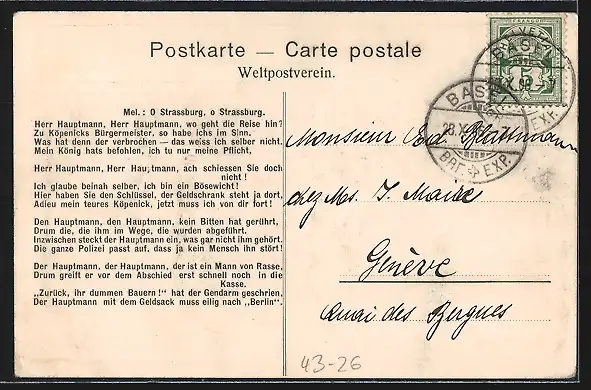 Postkarte — Carte postale
Weltpostverein.
Mel.: O Strassburg, o Strassburg.
Herr Hauptmann, Herr Hauptmann, wo geht die Reise hin?
Zu Köpenicks Bürgermeister, so habe ichs im Sinn.
Was hat denn der verbrochen — das weiss ich selber nicht,
Mein König hats befohlen, ich tu nur meine Pflicht,
Herr Hauptmann, Herr Hauptmann, ach schiessen Sie doch
nicht!
Ich glaube beinah selber, ich bin ein Bösewicht!
Hier haben Sie den Schlüssel, der Geldschrank steht ja dort,
Adieu mein teures Köpenick, jetzt muss ich von dir fort!
Den Hauptmann, den Hauptmann, kein Bitten hat gerührt,
Drum die, die ihm im Wege, die wurden abgeführt.
Inzwischen steckt der Hauptmann ein, was gar nicht ihm gehört.
Die ganze Polizei passt auf, dass ja kein Mensch ihn stört!
Der Hauptmann, der Hauptmann, der ist ein Mann von Rasse,
Drum greift er vor dem Abschied erst schnell noch in die
Kasse.
„Zurück, ihr dummen Bauern!“ hat der Gendarm geschrien,
Der Hauptmann mit dem Geldsack muss eilig nach „Berlin“.
FRANCO
HELVETIA
5
BASEL
BASEL
BRF. EXP.
EXP.
Monsieur Ed. Blattmann
chez Ms. J. Maire
Genève
Quai des Bergues
43-26